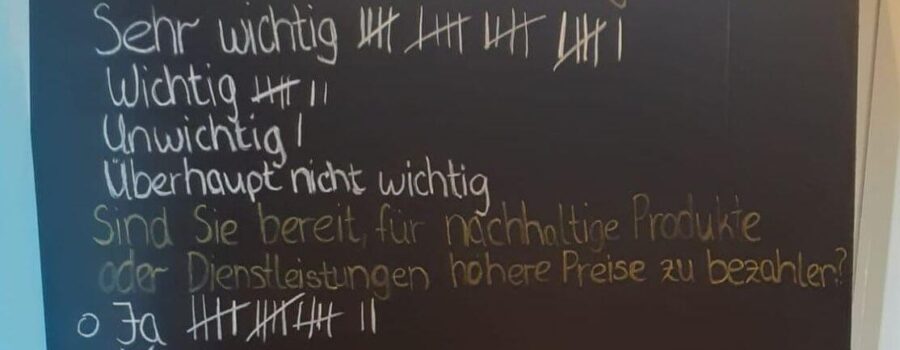 Sehr wichtig 卌 卌 卌 卌 |
Wichtig 卌 ||
Unwichtig |
Überhaupt nicht wichtig
Sind Sie bereit, für nachhaltige Produkte
oder Dienstleistungen höhere Preise zu bezahlen?
o Ja 卌 卌 卌 ||